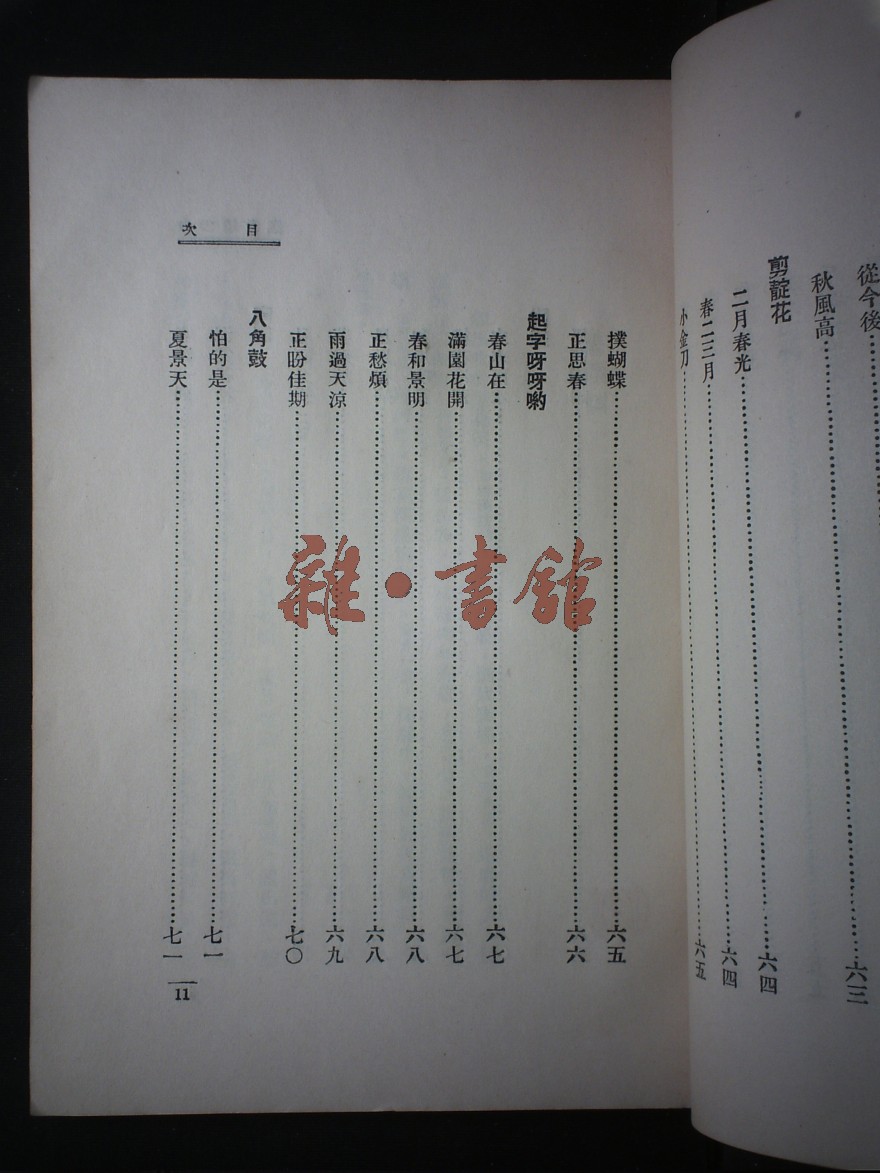 從今後
秋風高……六三
剪靛花
二月春光……六四
春二三月……六四
小金刀……六五
目次
撲蝴蝶……六五
正思春……六六
起字呀呀喲
春山在……六七
滿園花開……六七
春和景明……六八
正愁煩……六八
雨過天涼……六九
正盼佳期……七〇
八角鼓
怕的是……七一
夏景天……七一
11
雜·書館